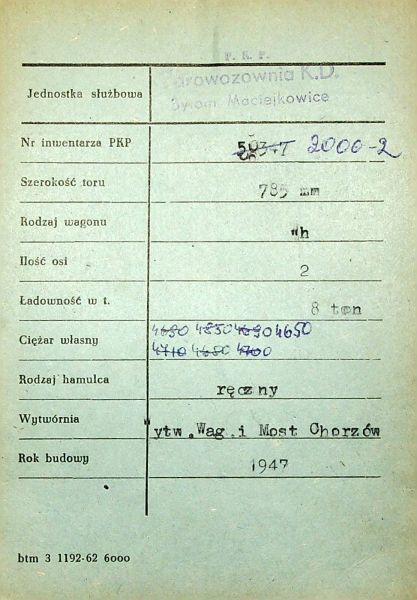 P. K. P.
Parowozownia K.D.
Jednostka służbowa
Bytom Maciejkowice
Nr inwentarza PKP 2000-2
Szerokość toru 785 mm
Rodzaj wagonu Wh
Ilość osi 2
Ładowność w t. 8 ton
4690 4850 4690 4650
Ciężar własny
4710 4680 4700
Rodzaj hamulca ręczny
Wytwórnia Wytw. Wag. i Most Chorzów
Rok budowy 1947
btm 3 1192-62 6000